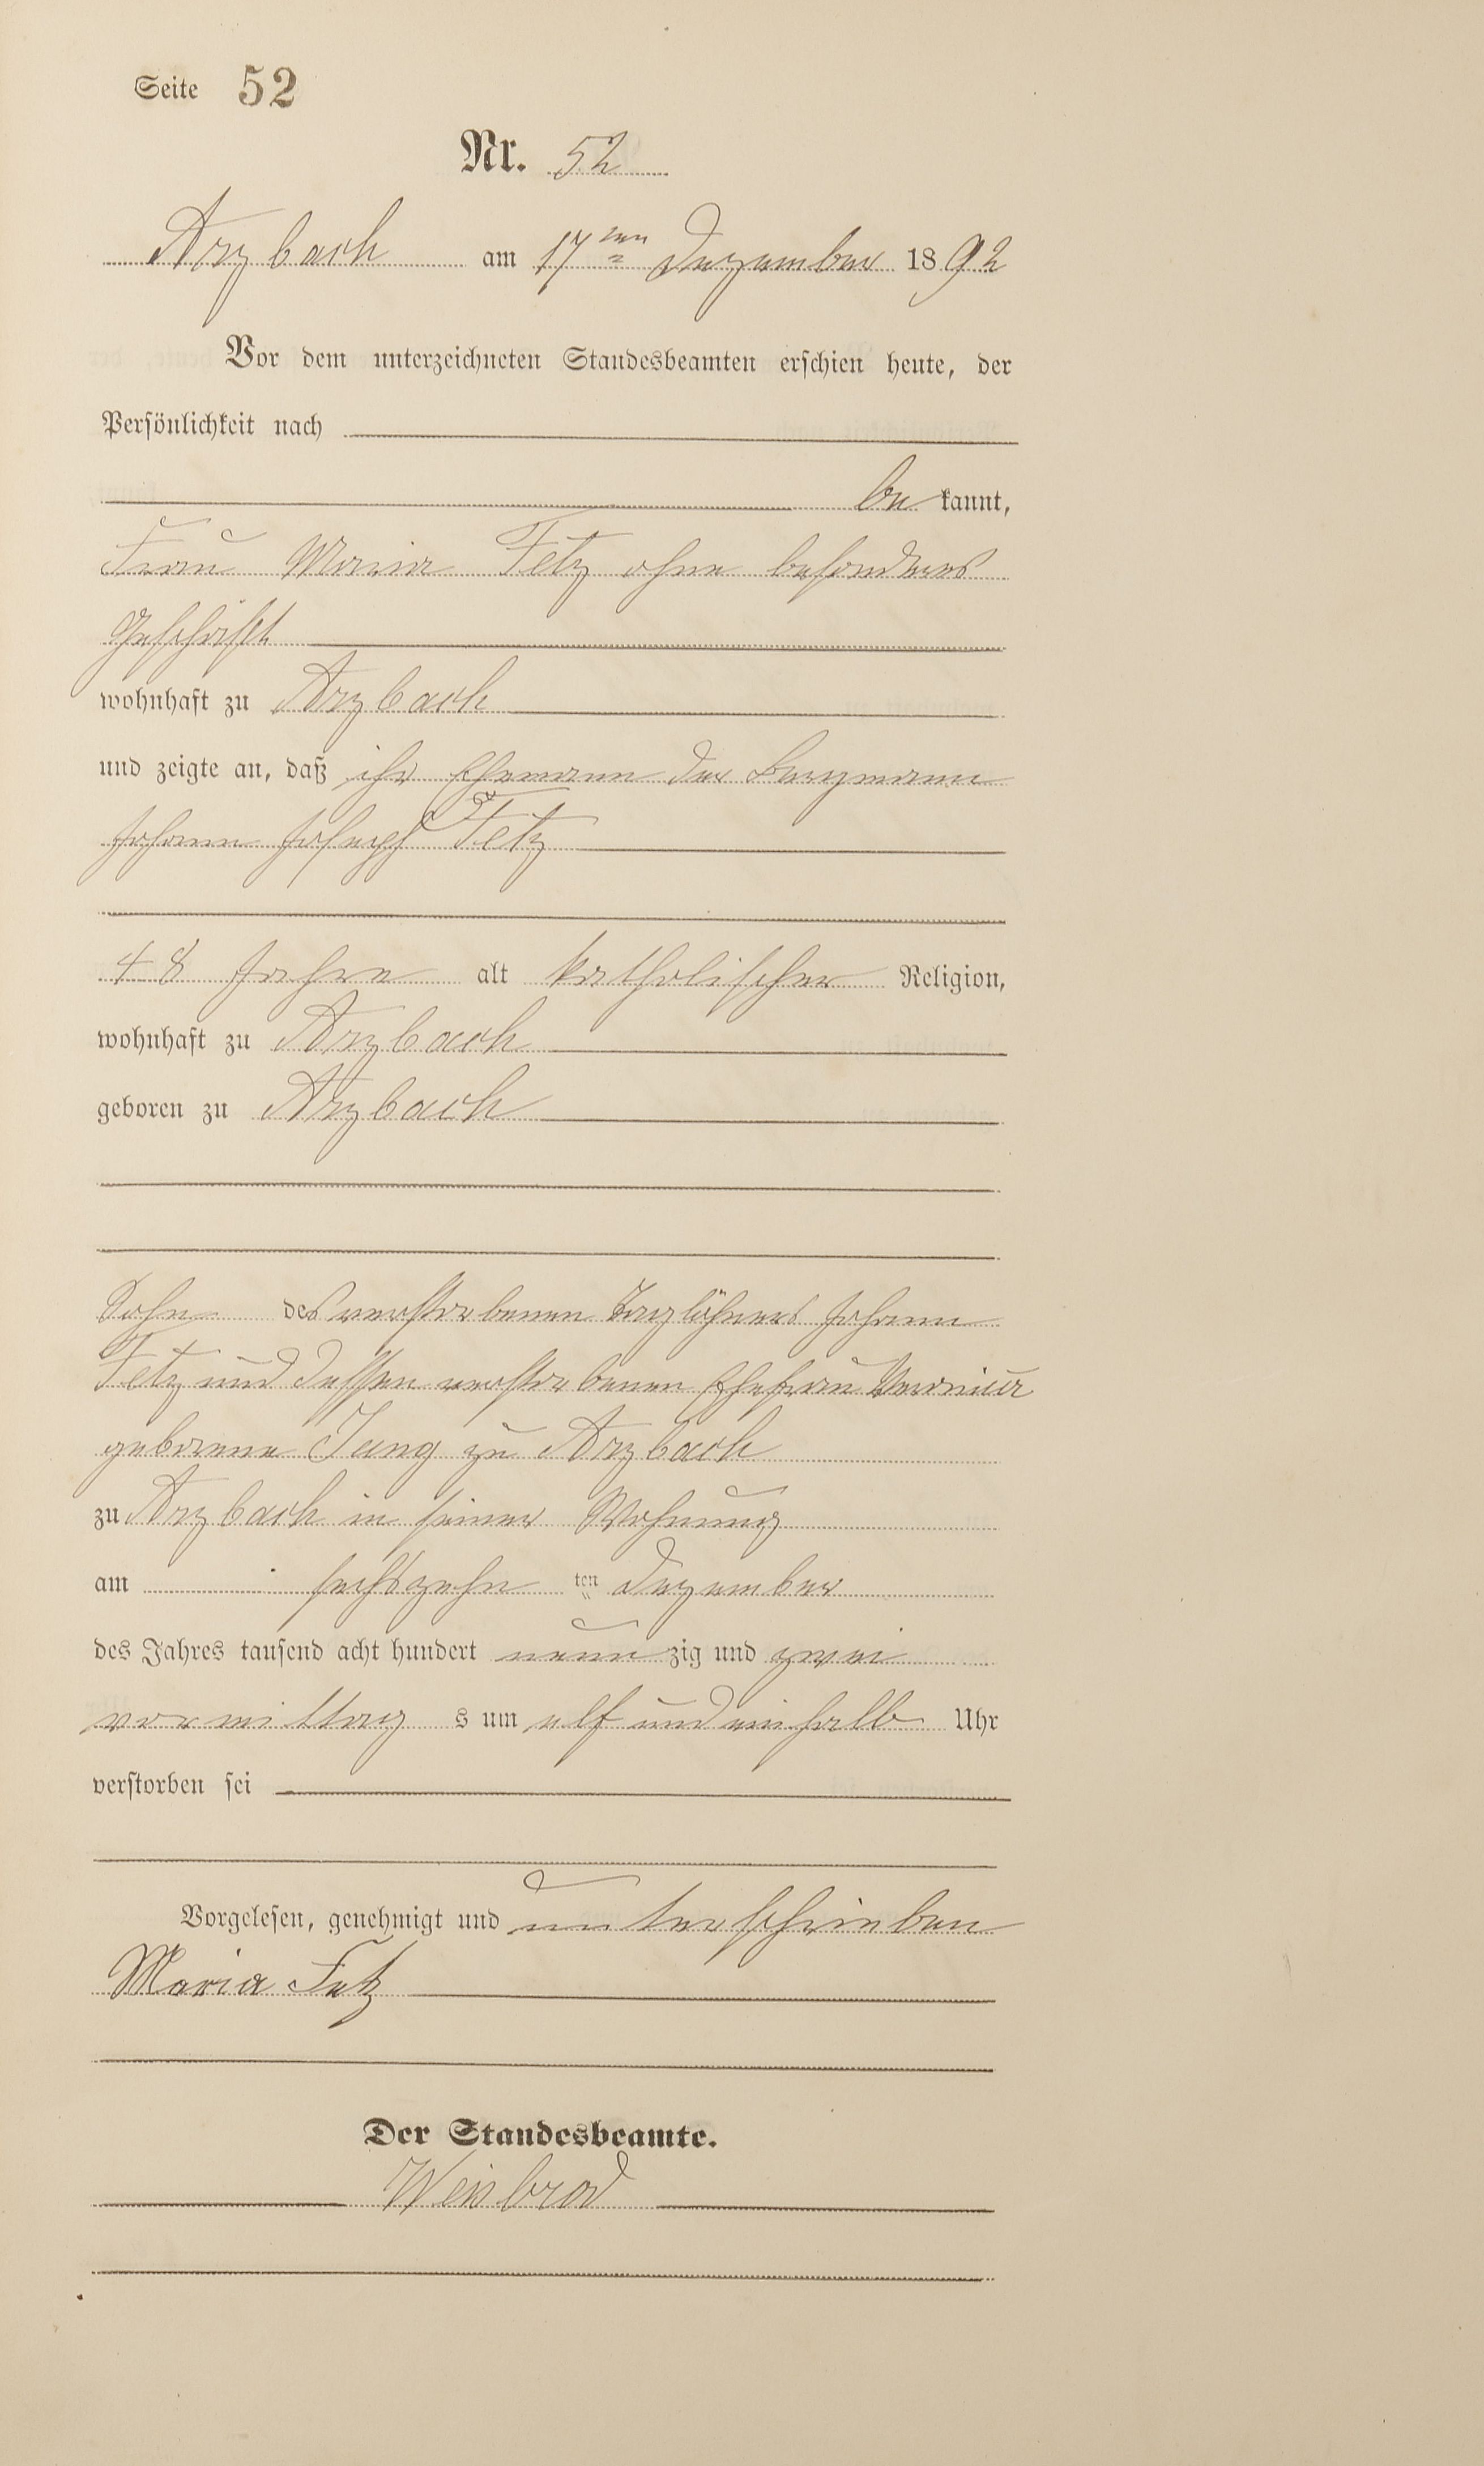 Seite 52
Nr. 52
Arzbach am 17ten Dezember 1892
Vor dem unterzeichneten Standesbeamten erschien heute, der
Persönlichkeit nach
bekannt,
Frau Maria Fetz ohne besonderes
Geschäft
wohnhaft zu Arzbach
und zeigte an, daß ihr Ehemann der Bergmann
Johann Joseph Fetz
48 Jahre alt katholischer Religion,
wohnhaft zu Arzbach
geboren zu Arzbach
Sohn des verstorbenen Tagelöhners Johann
Fetz und dessen verstorbenen Ehefrau Veronica
geborene Jung zu Arzbach
zu Arzbach in seiner Wohnung
am sechszehn ten Dezember
des Jahres tausend acht hundert neunzig und zwei
vormittags um elf und ein halb Uhr
verstorben sei
Vorgelesen, genehmigt und unterschrieben
Maria Fetz
Der Standesbeamte.
Weisbrod